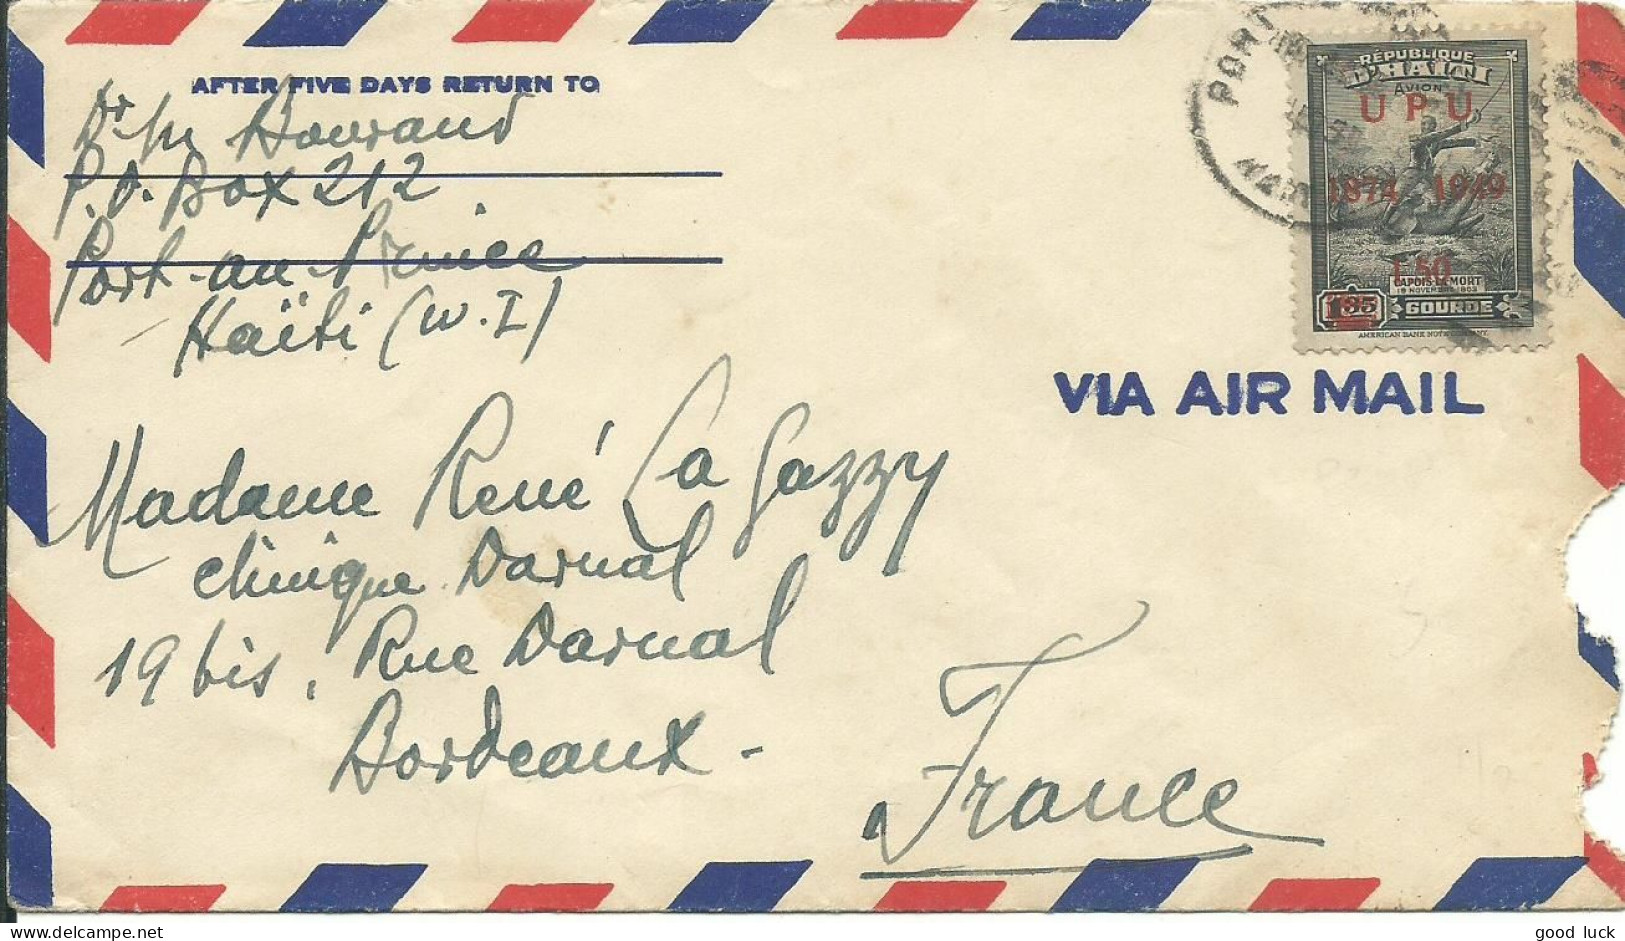 AFTER FIVE DAYS RETURN TO
Dr M Houraud
P.O. Box 212
Port-au-Prince
Haïti (W.I)
PORT
RÉPUBLIQUE
D'HAITI
AVION
U P U
1874 1949
1.50
CAPOIS-LA-MORT
18 NOVEMBRE 1803
1.35 GOURDE
AMERICAN BANK NOTE COMPANY.
VIA AIR MAIL
Madame René La Gazzy
clinique Darnal
19 bis, Rue Darnal
Bordeaux -
France
good luck